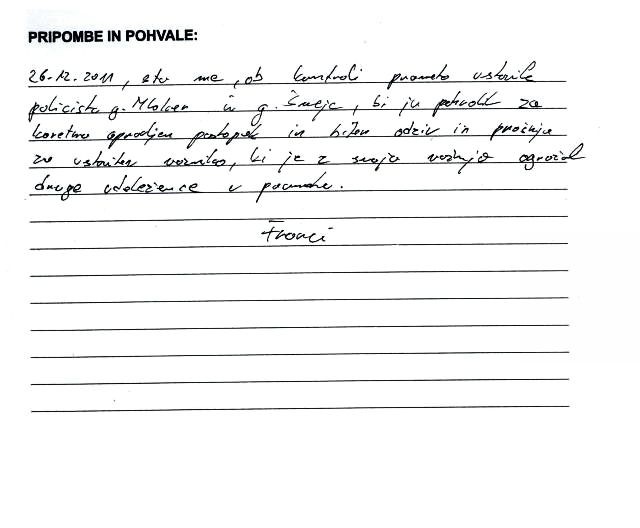 PRIPOMBE IN POHVALE:
26.12.2011, sta me, ob kontroli prometa ustavila
policista g. Mlakar in g. Šmejc, bi ju pohvalil za
koretno opravljen postopek in hiter odziv in prošnjo
za ustavitev voznika, ki je z svojo vožnjo ogrožal
druge udeležence v prometu.
Franci